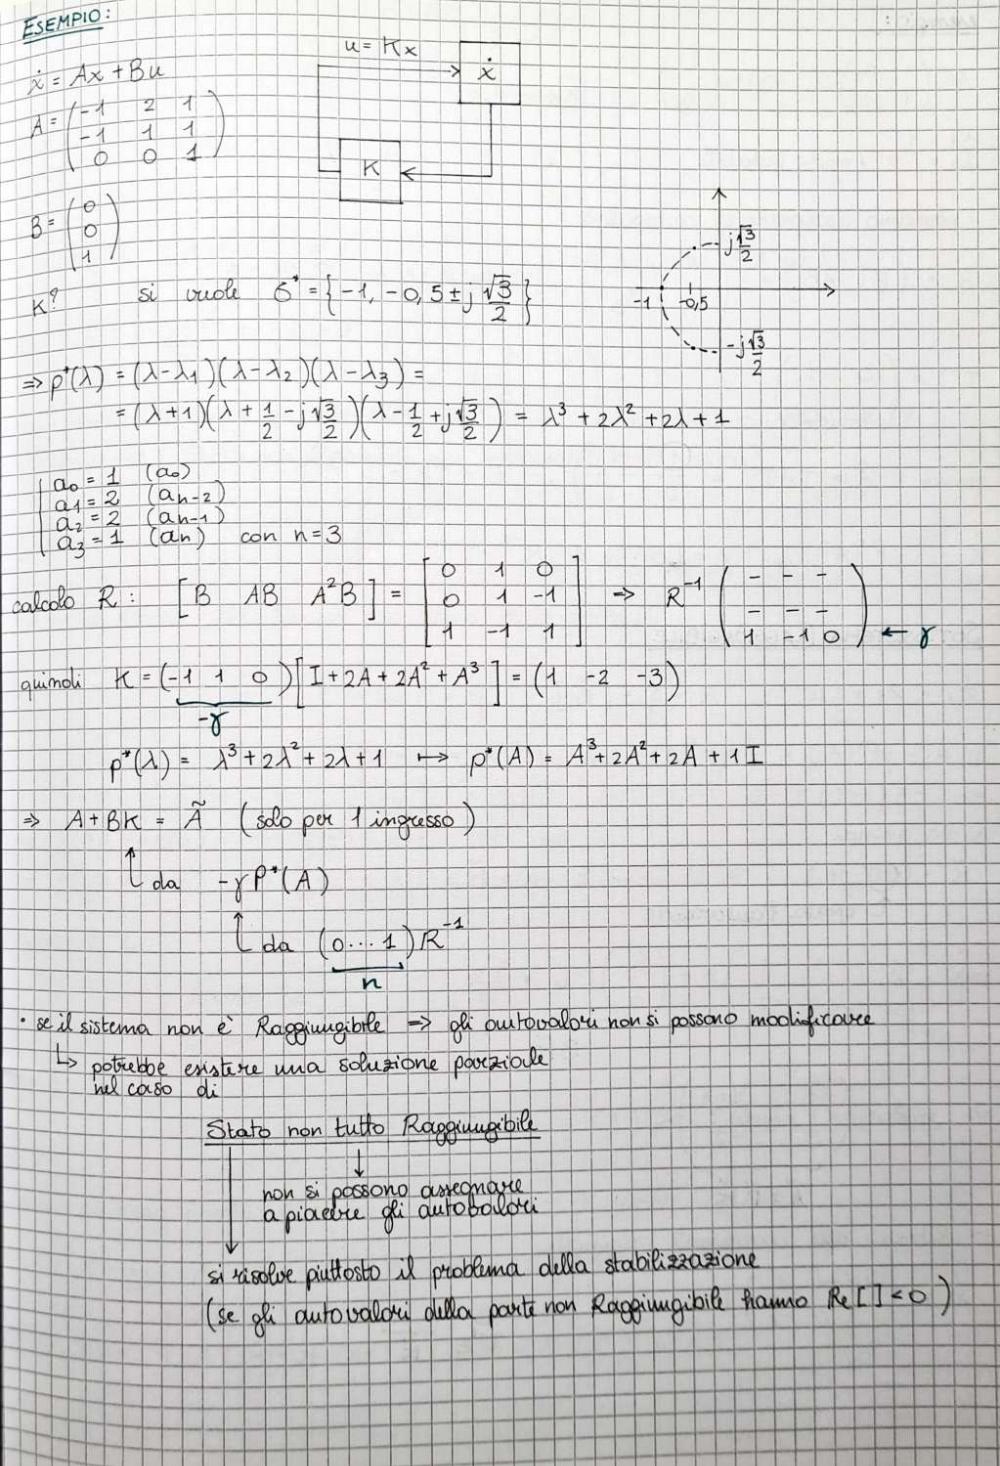 ESEMPIO:
u = Kx
ẋ
K
ẋ = Ax + Bu
A = (-1 2 1
-1 1 1
0 0 1)
B = (0
0
1)
j√3/2
-1 -0,5
-j√3/2
K? si vuole σ* = {-1, -0,5 ± j √3/2}
⇒ p*(λ) = (λ-λ1)(λ-λ2)(λ-λ3) =
= (λ+1)(λ + 1/2 - j√3/2)(λ - 1/2 + j√3/2) = λ³ + 2λ² + 2λ + 1
a0 = 1 (a0)
a1 = 2 (an-2)
a2 = 2 (an-1)
a3 = 1 (an) con n=3
calcolo R: [B AB A²B] = [0 1 0
0 1 -1
1 -1 1] ⇒ R⁻¹ (- - -
- - -
1 -1 0) ← γ
quindi K = (-1 1 0)[I + 2A + 2A² + A³] = (1 -2 -3)
-γ
p*(λ) = λ³ + 2λ² + 2λ + 1 ↦ p*(A) = A³ + 2A² + 2A + 1I
⇒ A + BK = Ã (solo per 1 ingresso)
da -γP*(A)
da (0...1)R⁻¹
n
• se il sistema non è Raggiungibile → gli autovalori non si possono modificare
↳ potrebbe esistere una soluzione parziale
nel caso di
Stato non tutto Raggiungibile
non si possono assegnare
a piacere gli autovalori
si risolve piuttosto il problema della stabilizzazione
(se gli autovalori della parte non Raggiungibile hanno Re[ ]<0)